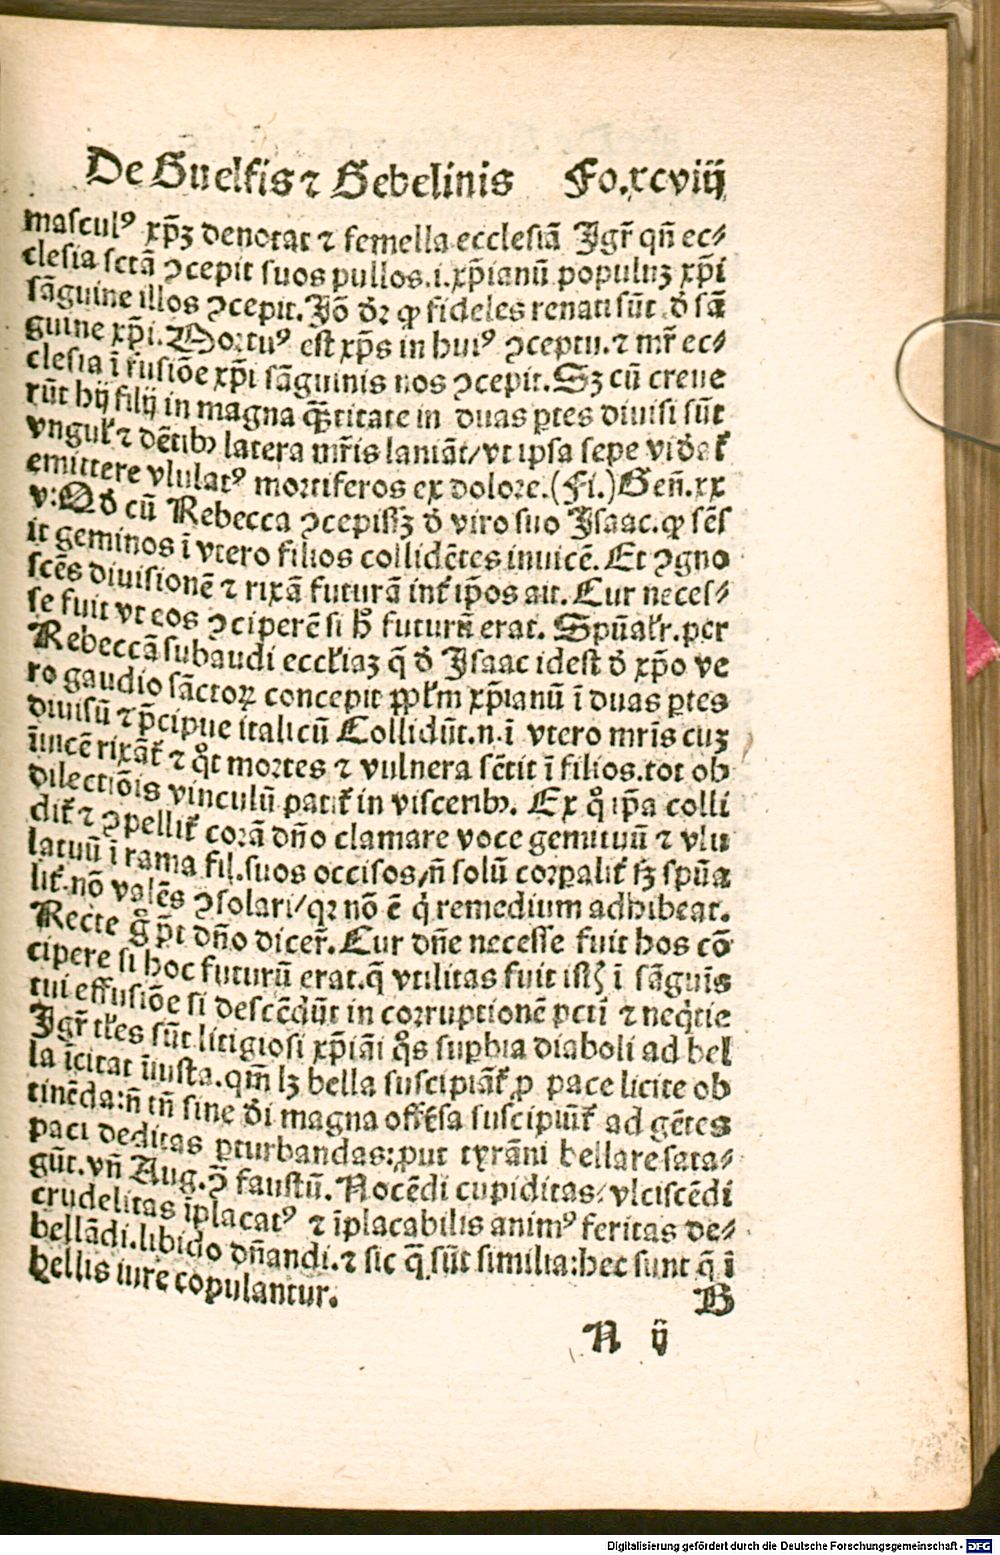 De Guelfis ⁊ Gebelinis Fo.xcviij
mascul⁹ xp̄ꝫ denotat ⁊ femella ecclesiā Igr̄ qn̄ ec⸗
clesia sctā ↄcepit suos pullos.i.xp̄ianū populuꝫ xp̄i
sāguine illos ↄcepit. Iō dr̄ ꝙ fideles renati sūt đ sā
guine xp̄i. Mortu⁹ est xp̄s in hui⁹ ↄceptu.⁊ mr̄ ec⸗
clesia ī fusiōe xp̄i sāguinis nos ↄcepit. Sꝫ cū creue
rūt hij filij in magna q̄titate in duas ꝑtes diuisi sūt
vngul̄ ⁊ dētibꝰ latera mr̄is laniāt/vt ipsa sepe videat̄
emittere vlulat⁹ mortiferos ex dolore.(Fi.)Gen̄.xx
v:Qđ cū Rebecca ↄcepissꝫ đ viro suo Isaac.ꝙ sēs
it geminos ī vtero filios collidētes inuicē. Et ↄgno
scēs diuisionē ⁊ rixā futurā int̄ ip̄os ait. Cur neces⸗
se fuit vt eos ↄciperē si hͦ futurū erat. Spūal̄r.per
Rebeccā subaudi eccl̄iaꝫ q̄ đ Isaac idest đ xp̄o ve
ro gaudio sāctoꝝ concepit ppl̄m xp̄ianū ī duas ꝑtes
diuisū ⁊ p̄cipue italicū Collidūt.n.ī vtero mr̄is cuꝫ
īuicē rixāt̄ ⁊ qͦt mortes ⁊ vulnera sētit ī filios.tot ob
dilectiōis vinculū patit̄ in visceribꝰ. Ex qͦ ip̄a colli
dit̄ ⁊ ↄpellit̄ corā dn̄o clamare voce gemituū ⁊ vlu
latuū ī rama fil̄.suos occisos/n̄ solū corꝑalit̄ sꝫ spūa
lit̄.nō valēs ↄsolari/qꝛ nō ē qͥ remedium adhibeat.
Recte gͦ p̄t dn̄o dicer̄. Cur dn̄e necesse fuit hos cō
cipere si hoc futurū erat.q̄ vtilitas fuit istꝭ ī sāguīs
tui effusiōe si descēdūt in corruptionē pcti ⁊ neqͥtie
Igr̄ tl̄es sūt litigiosi xp̄iāi qͦs suꝑbia diaboli ad bel
la īcitat īiusta.qm̄ lꝫ bella suscipiāt̄ ꝓ pace licite ob
tinēda:n̄ tn̄ sine di magna offēsa suscipiūt̄ ad gētes
paci deditas ꝑturbandas:ꝓut tyrāni bellare sata⸗
gūt.vn̄ Aug.ↄ̄ faustū. Nocēdi cupiditas/vlciscēdi
crudelitas īplacat⁹ ⁊ īplacabilis anim⁹ feritas de⸗
bellādi.libido dn̄andi.⁊ sic q̄ sūt similia:hec sunt q̄ ī
bellis iure copulantur. B
N ij
Digitalisierung gefördert durch die Deutsche Forschungsgemeinschaft - DFG